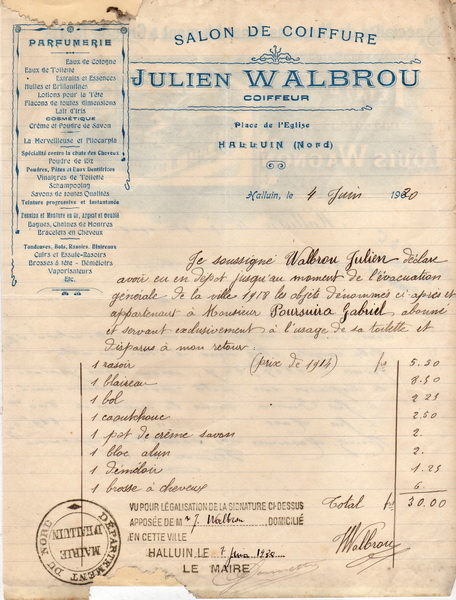 SALON DE COIFFURE
JULIEN WALBROU
COIFFEUR
Place de l'Eglise
HALLUIN (Nord)
PARFUMERIE
Eaux de Cologne
Eaux de Toilette
Extraits et Essences
Huiles et Brillantines
Lotions pour la Tête
Flacons de toutes dimensions
Lait d'Iris
COSMÉTIQUE
Crème et Poudre de Savon
La Merveilleuse et Pilocarpia
Spécialité contre la chute des Cheveux
Poudre de Riz
Poudres, Pâtes et Eaux Dentifrices
Vinaigres de Toilette
Schampooing
Savons de toutes Qualités
Teinture progressive et instantanée
Montures en Or, Argent et Doublé
Bagues, Chaînes de Montres
Bracelets en Cheveux
Tondeuses, Bols, Rasoirs, Blaireaux
Cuirs et Essuie-Rasoirs
Brosses à tête - Démêloirs
Vaporisateurs
Etc.
Halluin, le 4 Juin 1920
Je soussigné Walbrou Julien déclare
avoir eu en depot jusqu'au moment de l'évacuation
générale de la ville 1918 les objets dénommés ci après et
appartenant à Monsieur Poursuira Gabriel, abonné
et servant exclusivement à l'usage de sa toilette et
disparus à mon retour.
1 rasoir (prix de 1914) frs 5.50
1 blaireau 8.50
1 bol 2.25
1 caoutchouc 2.50
1 pot de crème savon 2.
1 bloc alun 2.
1 démêloir 1.25
1 brosse à cheveux 6.
Total frs 30.00
VU POUR LÉGALISATION DE LA SIGNATURE CI-DESSUS
APPOSÉE DE Mr J. Walbrou DOMICILIÉ
EN CETTE VILLE
HALLUIN, LE 7 Juin 1920
LE MAIRE
Walbrou
DÉPARTEMENT DU NORD
MAIRIE
D'HALLUIN